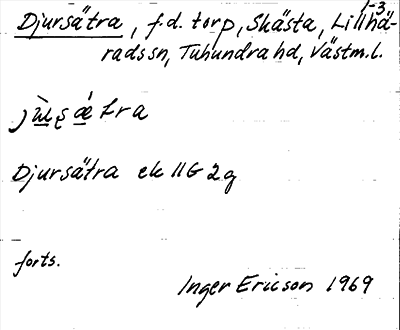 1-3
Djursätra, f.d. torp, Skästa, Lillhä-
rads sn, Tuhundra hd, Västm.l.
Djursätra ek 11G 2g
forts.
Inger Ericson 1969